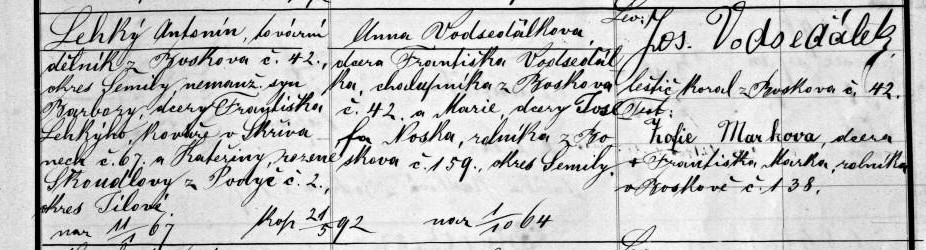 Lehký Antonín, tovární
dělník z Boskova č. 42.,
okres Semily, nemanž. syn
Barbory, dcery Františka
Lehkýho, kováře v Skřiva
nech č. 67. a Kateřiny, rozené
Škoudlovy z č. 2.,
okres
nar 11/1 67 Kop 21/5 92
Anna Vodsedálkova,
dcera Františka Vodsedál
ka, chalupníka z Boskova
č. 42. a Marie, dcery Jose
fa Noska, rolníka z Bo
skova č. 159., okres Semily.
nar 1/10 64
Lev:
Jos. Vodsedálek
leštič koral z Boskova č. 42.
Test:
Žofie Markova, dcera
+ Františka Marka, rolníka
v Boskově č. 138.